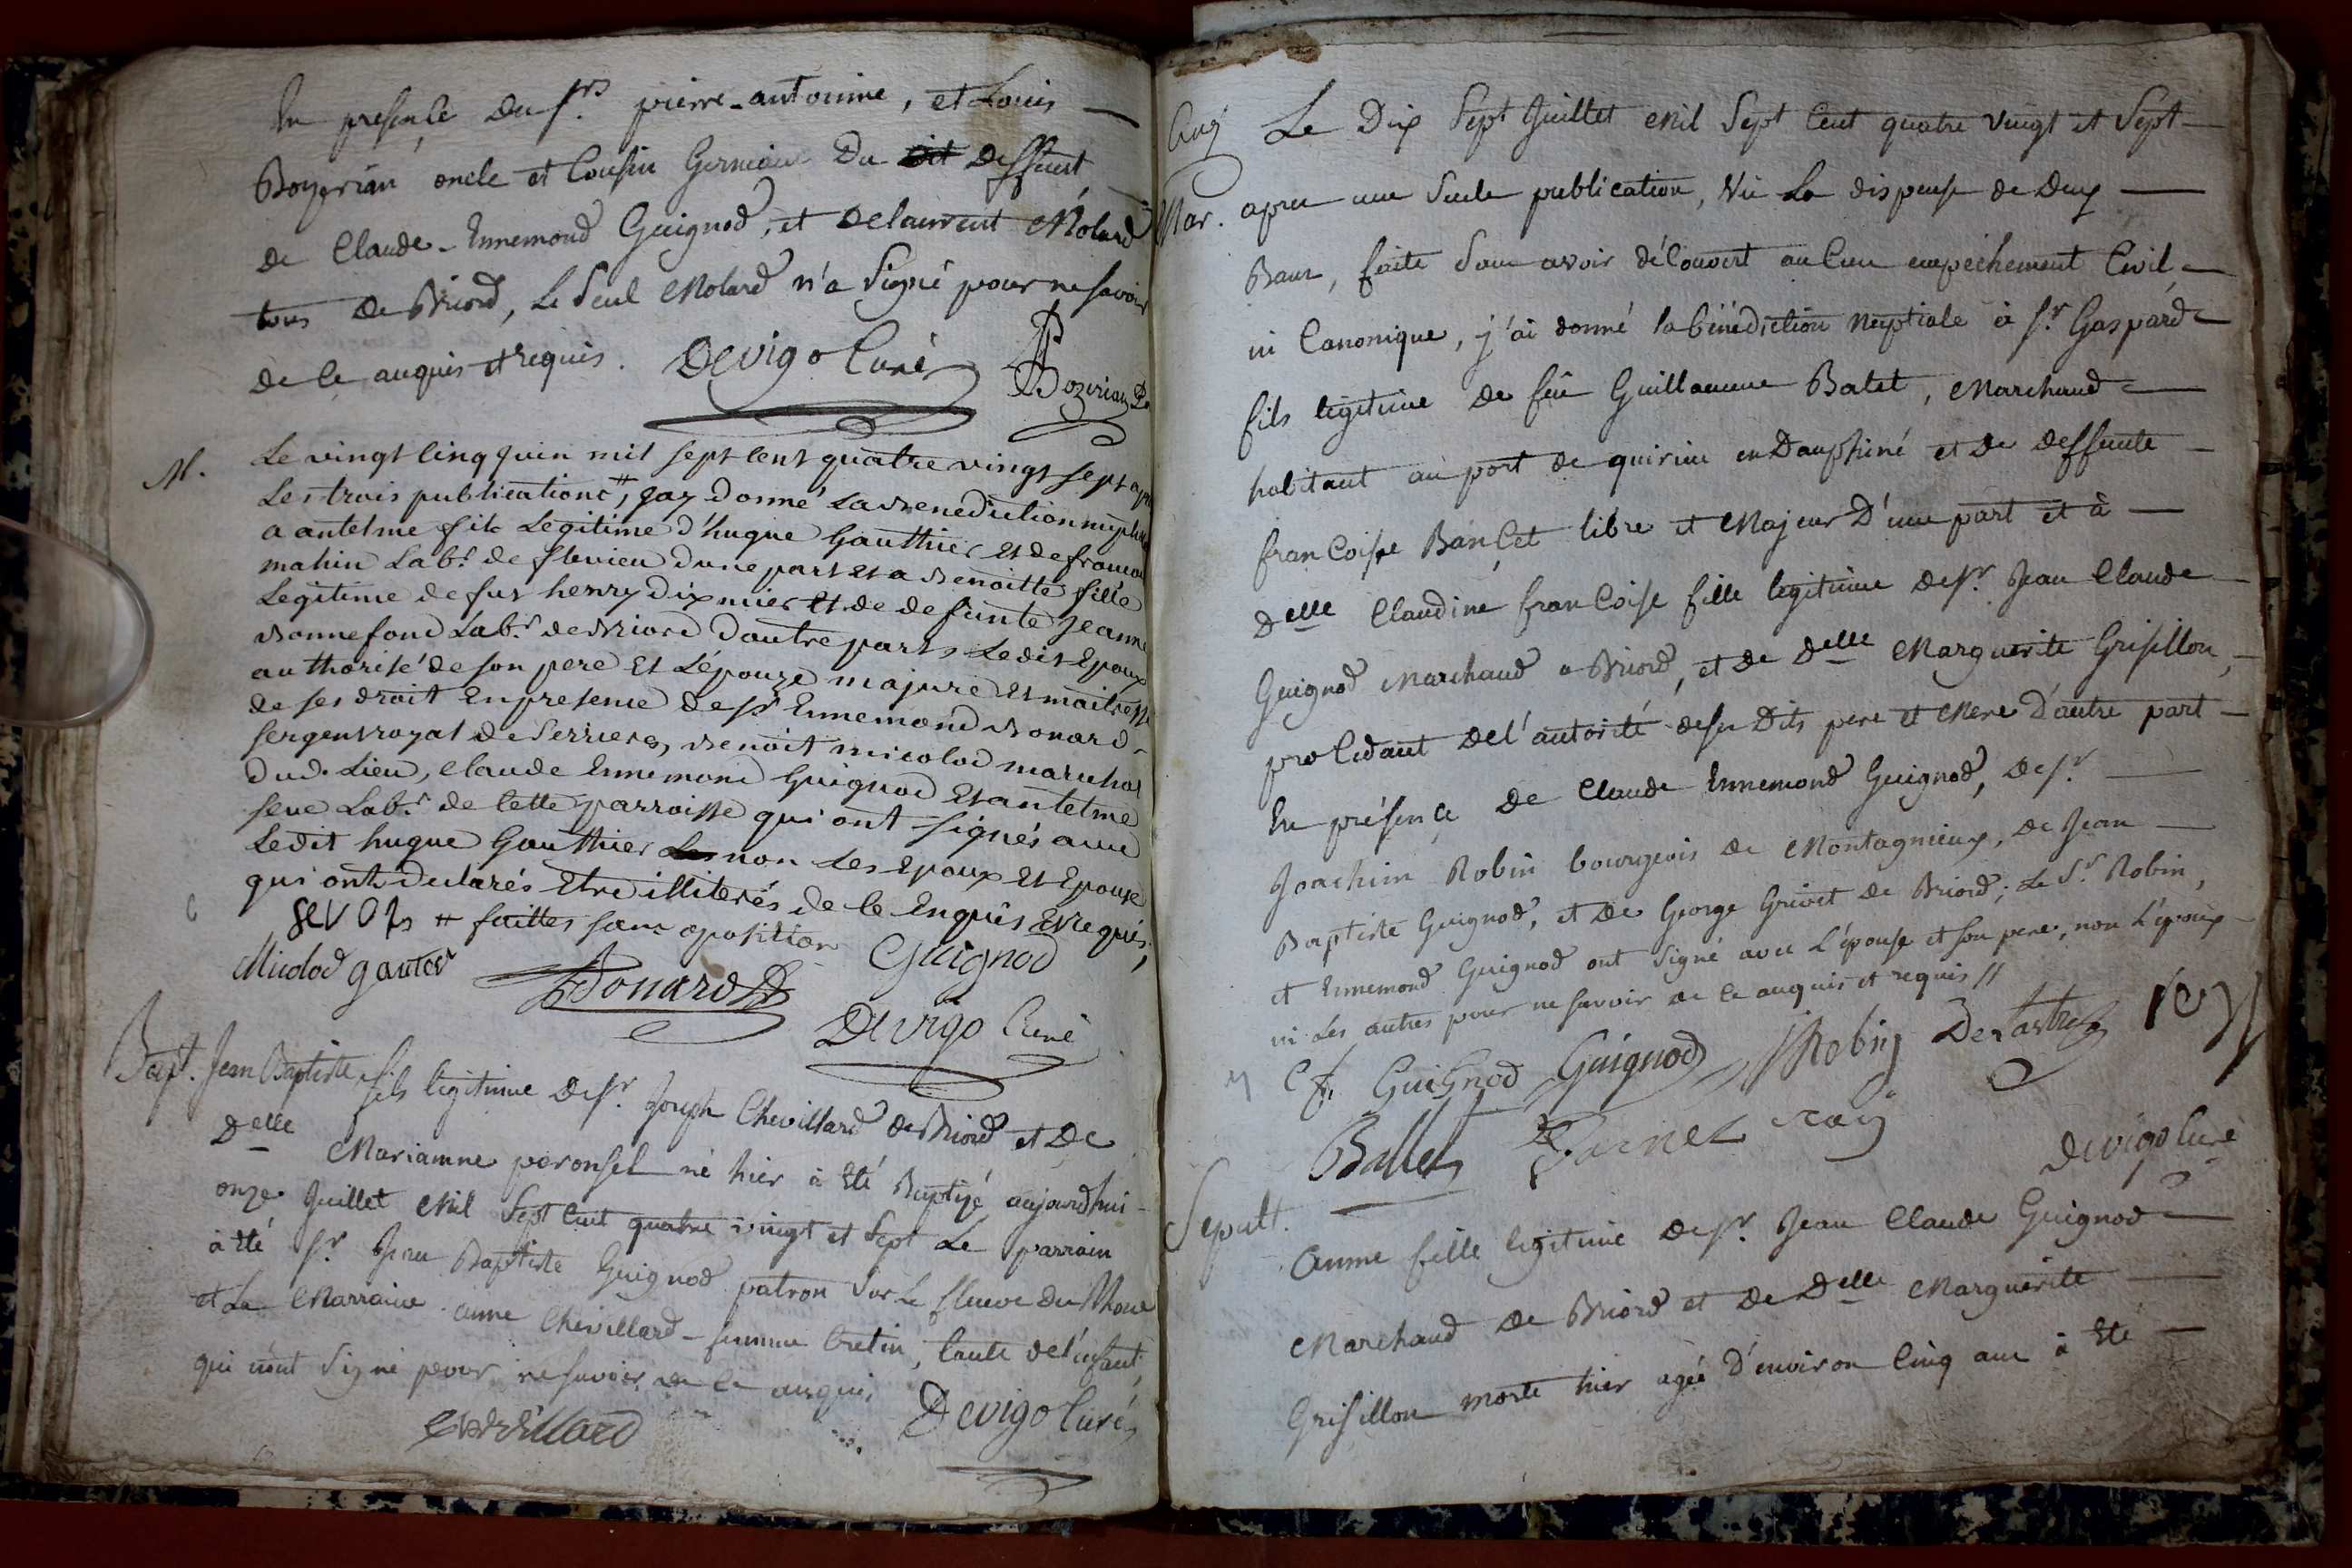 En presençe du sr. pierre-antoinne, et Louis
Bozerian oncle et Cousin Germain Du dit deffunt
de Claude-Ennemond Guignod, et de laurent Molard
tous de Briord, Le Seul Molard n'a Signé pour ne savoir
de ce, anquis et requis. Devigo Curé
Bozerian
M. Le vingt cinq juin mil sept cent quatre vingt sept
Les trois publications #, jay donné La benediction nuptiale
a antelme fils Legitime d'hugue Gauthier et de
mahin Labr. de flevieu dune part et a benoitte fille
Legitime de fut henry dixmier et de defunte jeanne
bonnefond Labr. de briord dautre part, Ledit Epoux
authorisé de son pere et Lépouze majure et maitresse
de ses droit En presence de sr Ennemond bonard
sergent royal de Serrieres, benoit micolod marechal
dud. Lieu, claude Ennemond Guignod et antelme
seve Labr. de cette parroisse qui ont signés avec
Ledit hugue Gauthier non Les Epoux et Epouse
qui ont declarés Etre illiterés de ce Enquis et requis,
# faittes sans oposition Guignod
Micolod gautier
Bonard
Devigo Curé
Bapt. Jean Baptiste fils legitime de sr. Joseph Chevillard de Briord et De
Delle Marianne peronsel né hier à Eté Baptizé aujourdhui
onze Juillet Mil Sept Cent quatre vingt et Sept Le parrain
à Eté sr Jean Baptiste Guignod patron Sur Le fleuve du Rhone
et La Marraine anne Chevillard-femme Cretin, tante de l'enfant,
qui n'ont Signé pour ne Savoir de ce anquis
Chevillard Devigo Curé
Le Dix Sept Juillet Mil Sept Cent quatre Vingt et Sept
Mar. apres une Seule publication, Vü La dispense de Deux
Bans, faite Sans avoir découvert aucun empéchement Civil,
ni Canonique, j'ai donné la bénédiction Nuptiale à sr. Gaspard
fils légitime de feu Guillaume Balet, Marchand
habitant au port de quirieu en Dauphiné et de deffunte
francoise Bançet libre et Majeur D'une part et à
Delle Claudine francoise fille legitime de sr. Jean Claude
Guignod Marchand a Briord, et de Delle Marguerite Grisillon,
procedant de l'autorité deses Dits pere et Mere D'autre part
En présençe de Claude Ennemond Guignod, de sr
Joachim Robin bourgeois de Montagnieux, de Jean
Baptiste Guignod, et de George Grivet de Briord; Le Sr. Robin,
et Ennemond Guignod ont Signé avec L'épouse et son pere, non L'époux
ni Les autres pour ne savoir de ce anquis et requis //
C f. Guignod Guignod JRobin
Ballet
Devigo Curé
Sepult. Anne fille legitime de sr. Jean Claude Guignod
Marchand de Briord et de Delle Marguerite
Grisillon morte hier agée D'environ Cinq ans à Eté